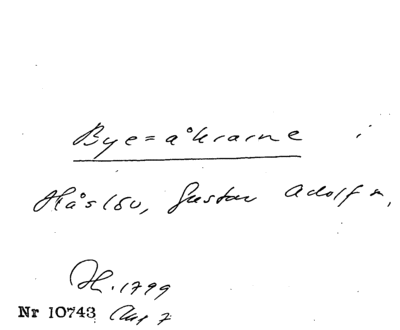 Bye=åkrarne i
Håslöv, Gustav Adolf s,
H. 1799
Nr 10743 Aug 7